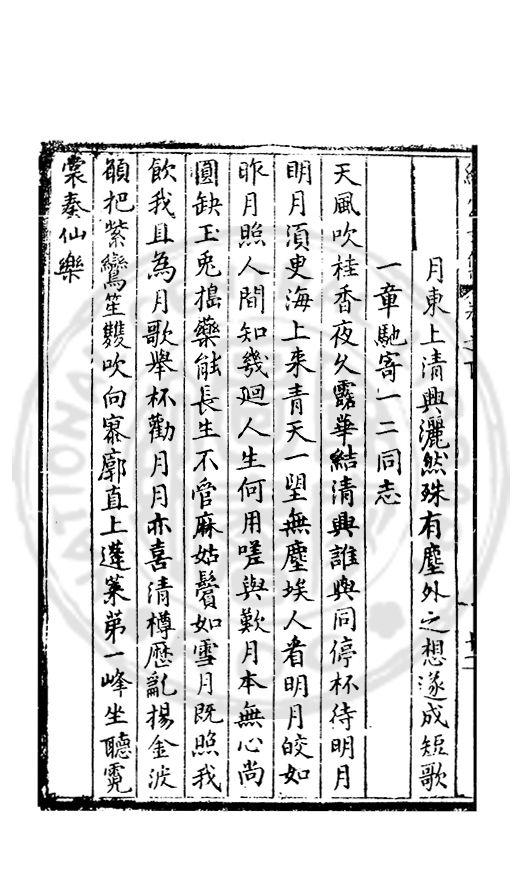 月東上清興灑然殊有塵外之想遂成短歌
一章馳寄一二同志
天風吹桂香夜久露華結清興誰與同停杯待明月
明月須臾海上来青天一望無塵埃人看明月皎如
昨月照人間知幾廻人生何用嗟與歎月本無心尚
圓缺玉兎搗藥能長生不管麻姑鬢如雪月既照我
飲我且為月歌舉杯勸月月亦喜清樽歴亂揚金波
願把紫鸞笙雙吹向寥廓直上蓬莱第一峰坐聽霓
裳奏仙樂